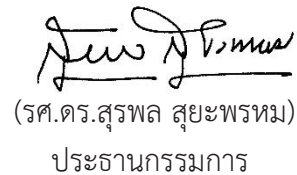 (รศ.ดร.สุรพล สุยะพรหม)
ประธานกรรมการ